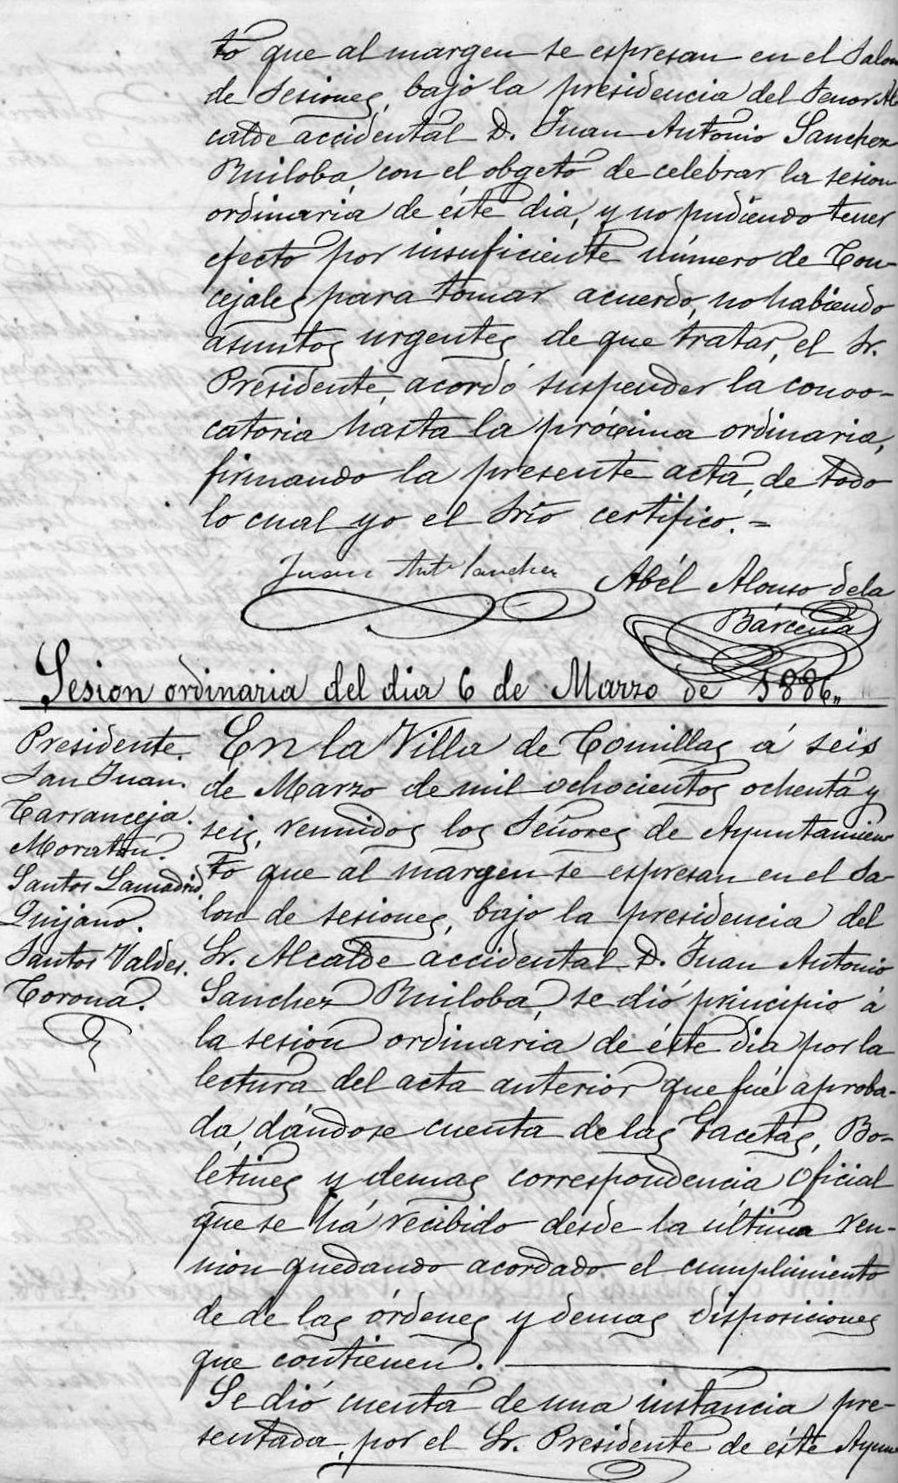 to que al margen se espresan en el Salon
de Sesiones, bajo la presidencia del Señor Al
calde accidental D. Juan Antonio Sanchez
Ruiloba, con el obgeto de celebrar la sesion
ordinaria de éste dia, y no pudiendo tener
efecto por insuficiente número de Con-
cejales para tomar acuerdo, no habiendo
asuntos urgentes de que tratar, el Sr.
Presidente, acordó suspender la convo-
catoria hasta la próxima ordinaria,
firmando la presente acta, de todo
lo cual yo el Srio certifico.=
Juan Ant Sanchez
Abél Alonso de la
Bárcena
Sesion ordinaria del dia 6 de Marzo de 1886,,
Presidente.
San Juan.
Carranceja.
Moratón.
Santos Lamadrid.
Quijano.
Santos Valdes.
Corona.
En la Villa de Comillas á seis
de Marzo de mil ochocientos ochenta y
seis, reunidos los Señores de Ayuntamien
to que al margen se espresan en el Sa-
lon de sesiones, bajo la presidencia del
Sr. Alcalde accidental D. Juan Antonio
Sanchez Ruiloba, se dió principio á
la sesion ordinaria de éste dia por la
lectura del acta anterior que fué aproba-
da, dándose cuenta de las Gacetas, Bo-
letines y demas correspondencia Oficial
que se há recibido desde la última reu-
nion quedando acordado el cumplimiento
de de las órdenes y demas disposiciones
que contienen.
Se dió cuenta de una instancia pre-
sentada por el Sr. Presidente de éste Ayun